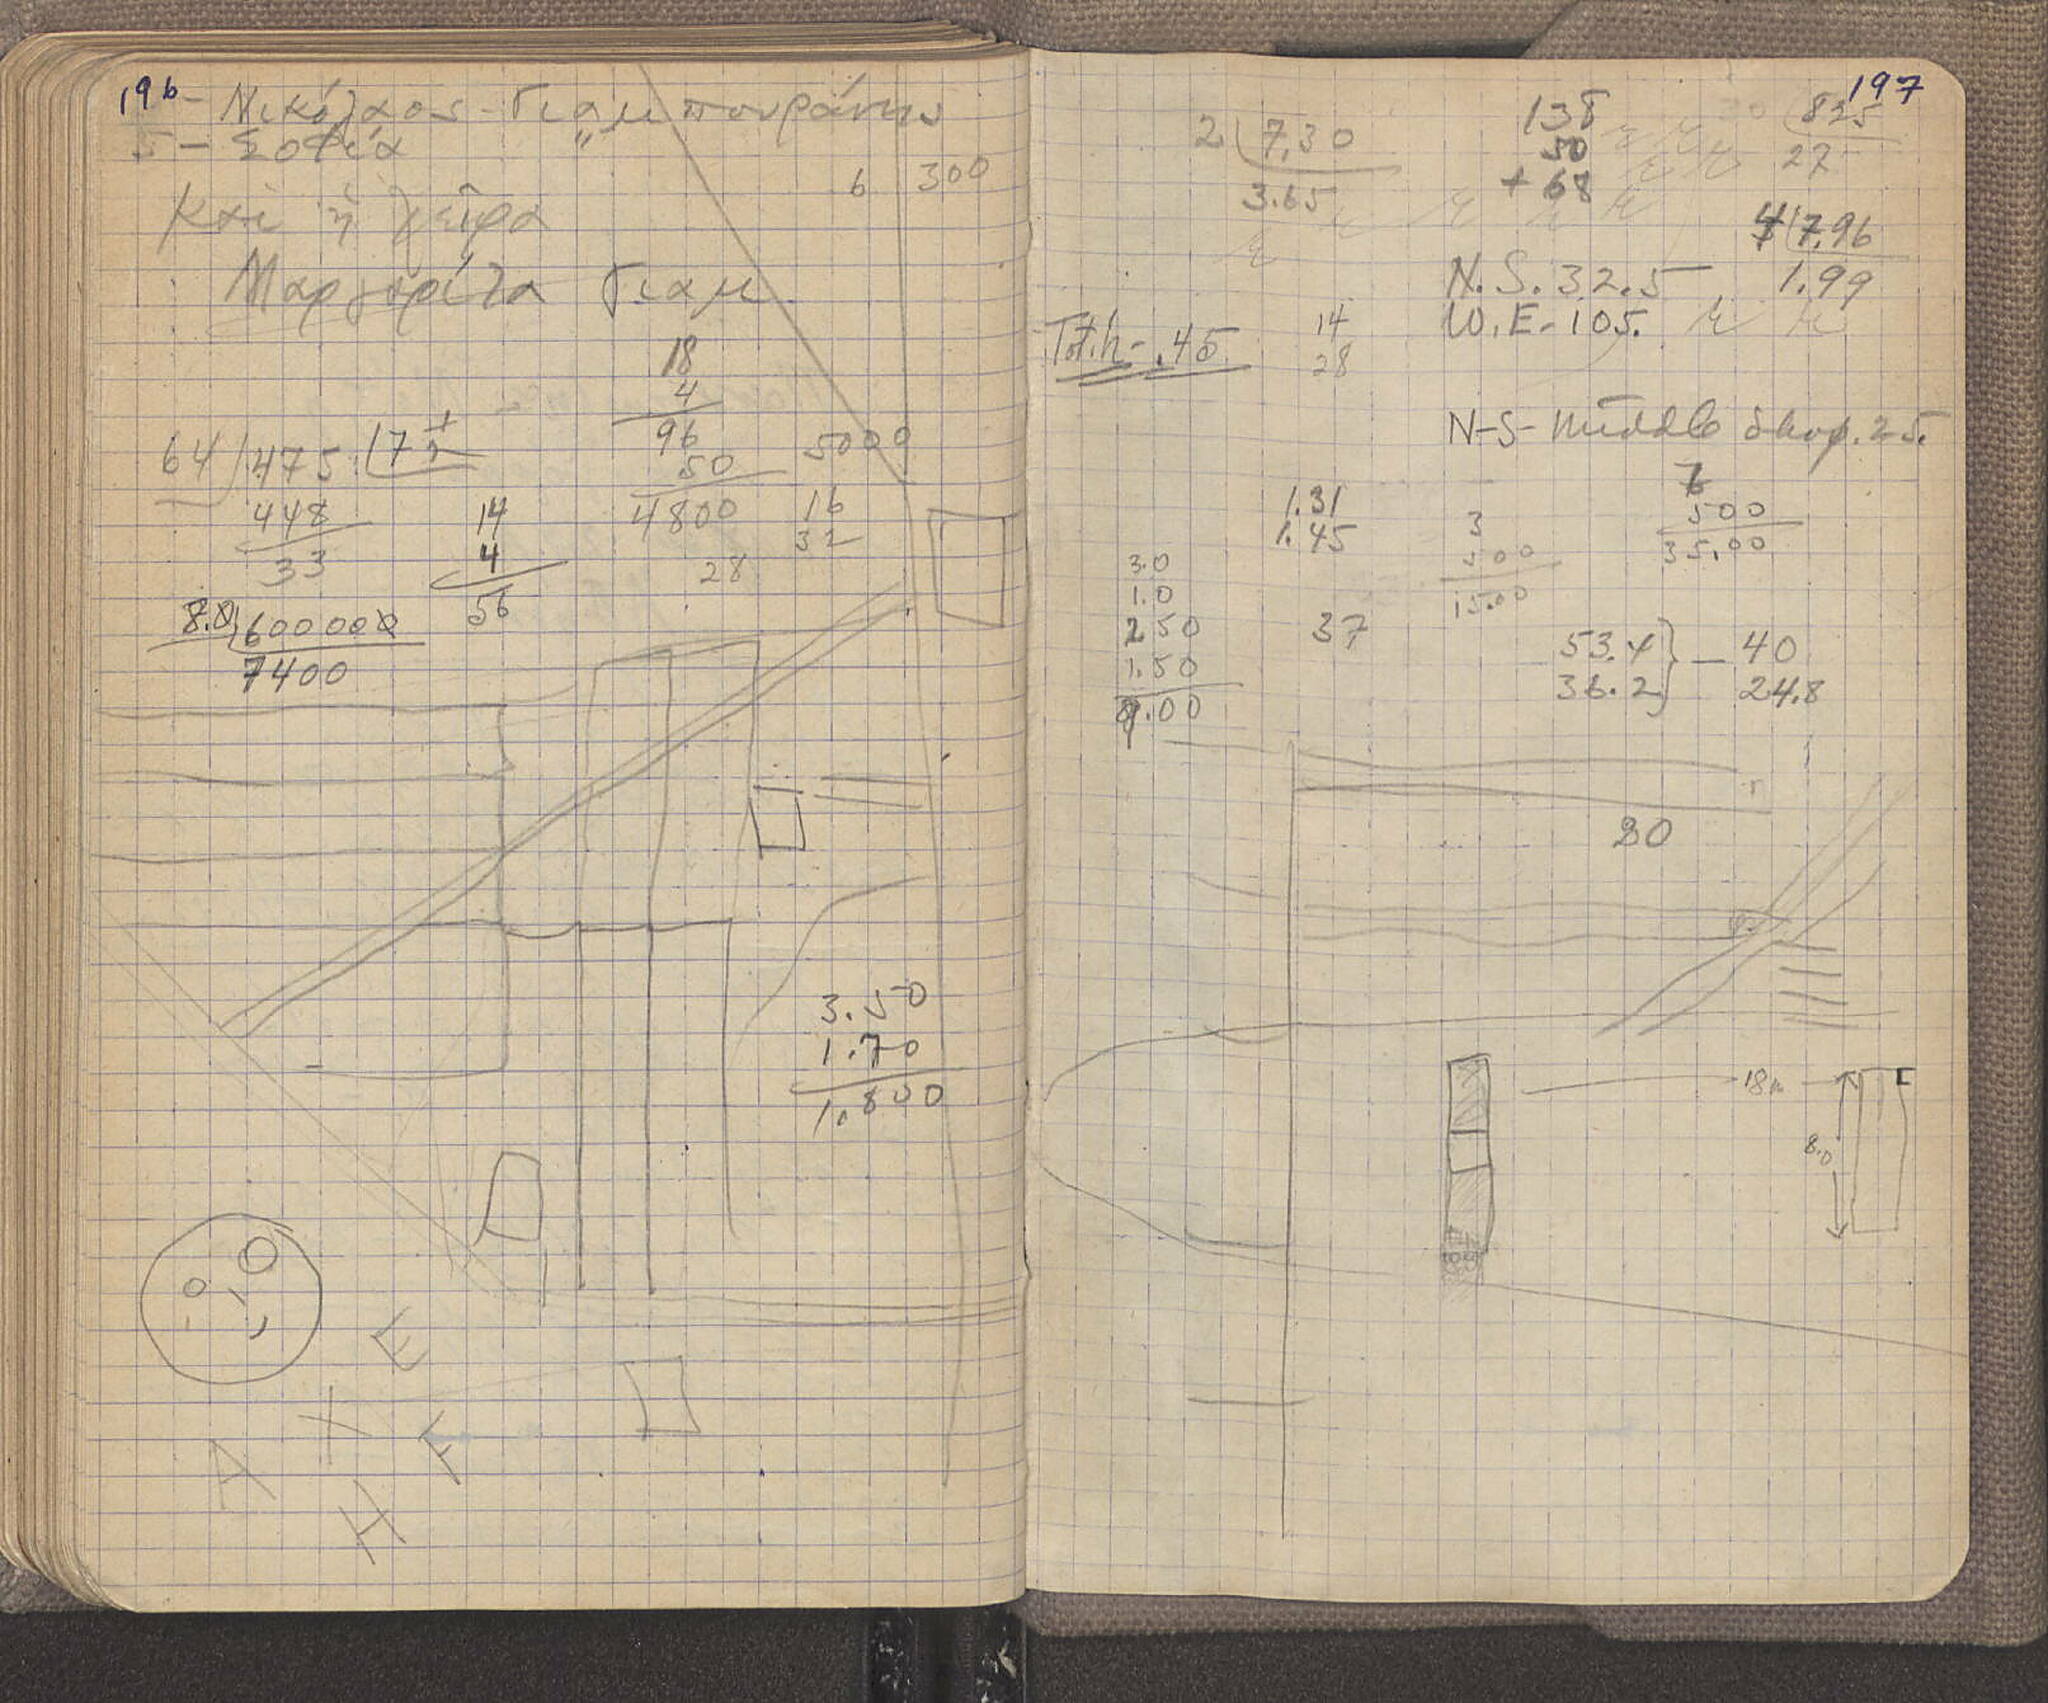 196
- Νικόλαος - Γιαμπουράνης
5 - Σοφία "
6 300
καὶ ἡ χείρα
Μαργαρίτα Γιαμ.
18
4
96
50
4800
5000
16
32
28
64 475 7
448
33
14
4
56
8.0 600000
7400
3.50
1.70
1.800
E
A X F
H
197
2 7.30
3.65
138
50
+ 68
825
27
4 7.96
1.99
N.S. 32.5
W.E - 105.
Tot.h - .45
14
28
N-S- Middle shop. 25.
1.31
1.45
3
500
15.00
7
500
35.00
3.0
1.0
2 50
1.50
9.00
37
53.4 } - 40
36.2 } 24.8
80
18m
8.0